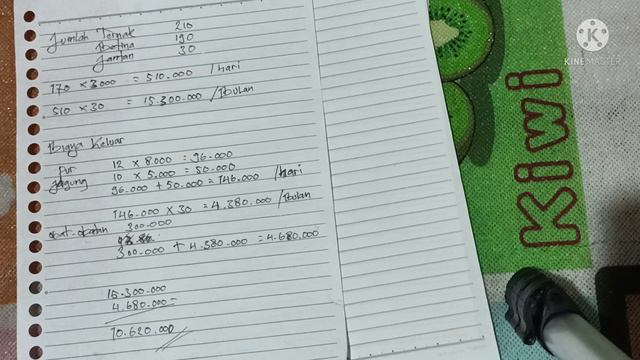 Jumlah Ternak 210
Betina 190
Jantan 30
170 × 3000 = 510.000 /hari
510 × 30 = 15.300.000 /Bulan
Biaya Keluar
Pur 12 × 8.000 = 96.000
Jagung 10 × 5.000 = 50.000
96.000 + 50.000 = 146.000 /hari
146.000 × 30 = 4.380.000 /Bulan
obat-obatan 300.000
300.000 + 4.380.000 = 4.680.000
15.300.000
4.680.000
10.620.000
Kiwi
KINEMASTER